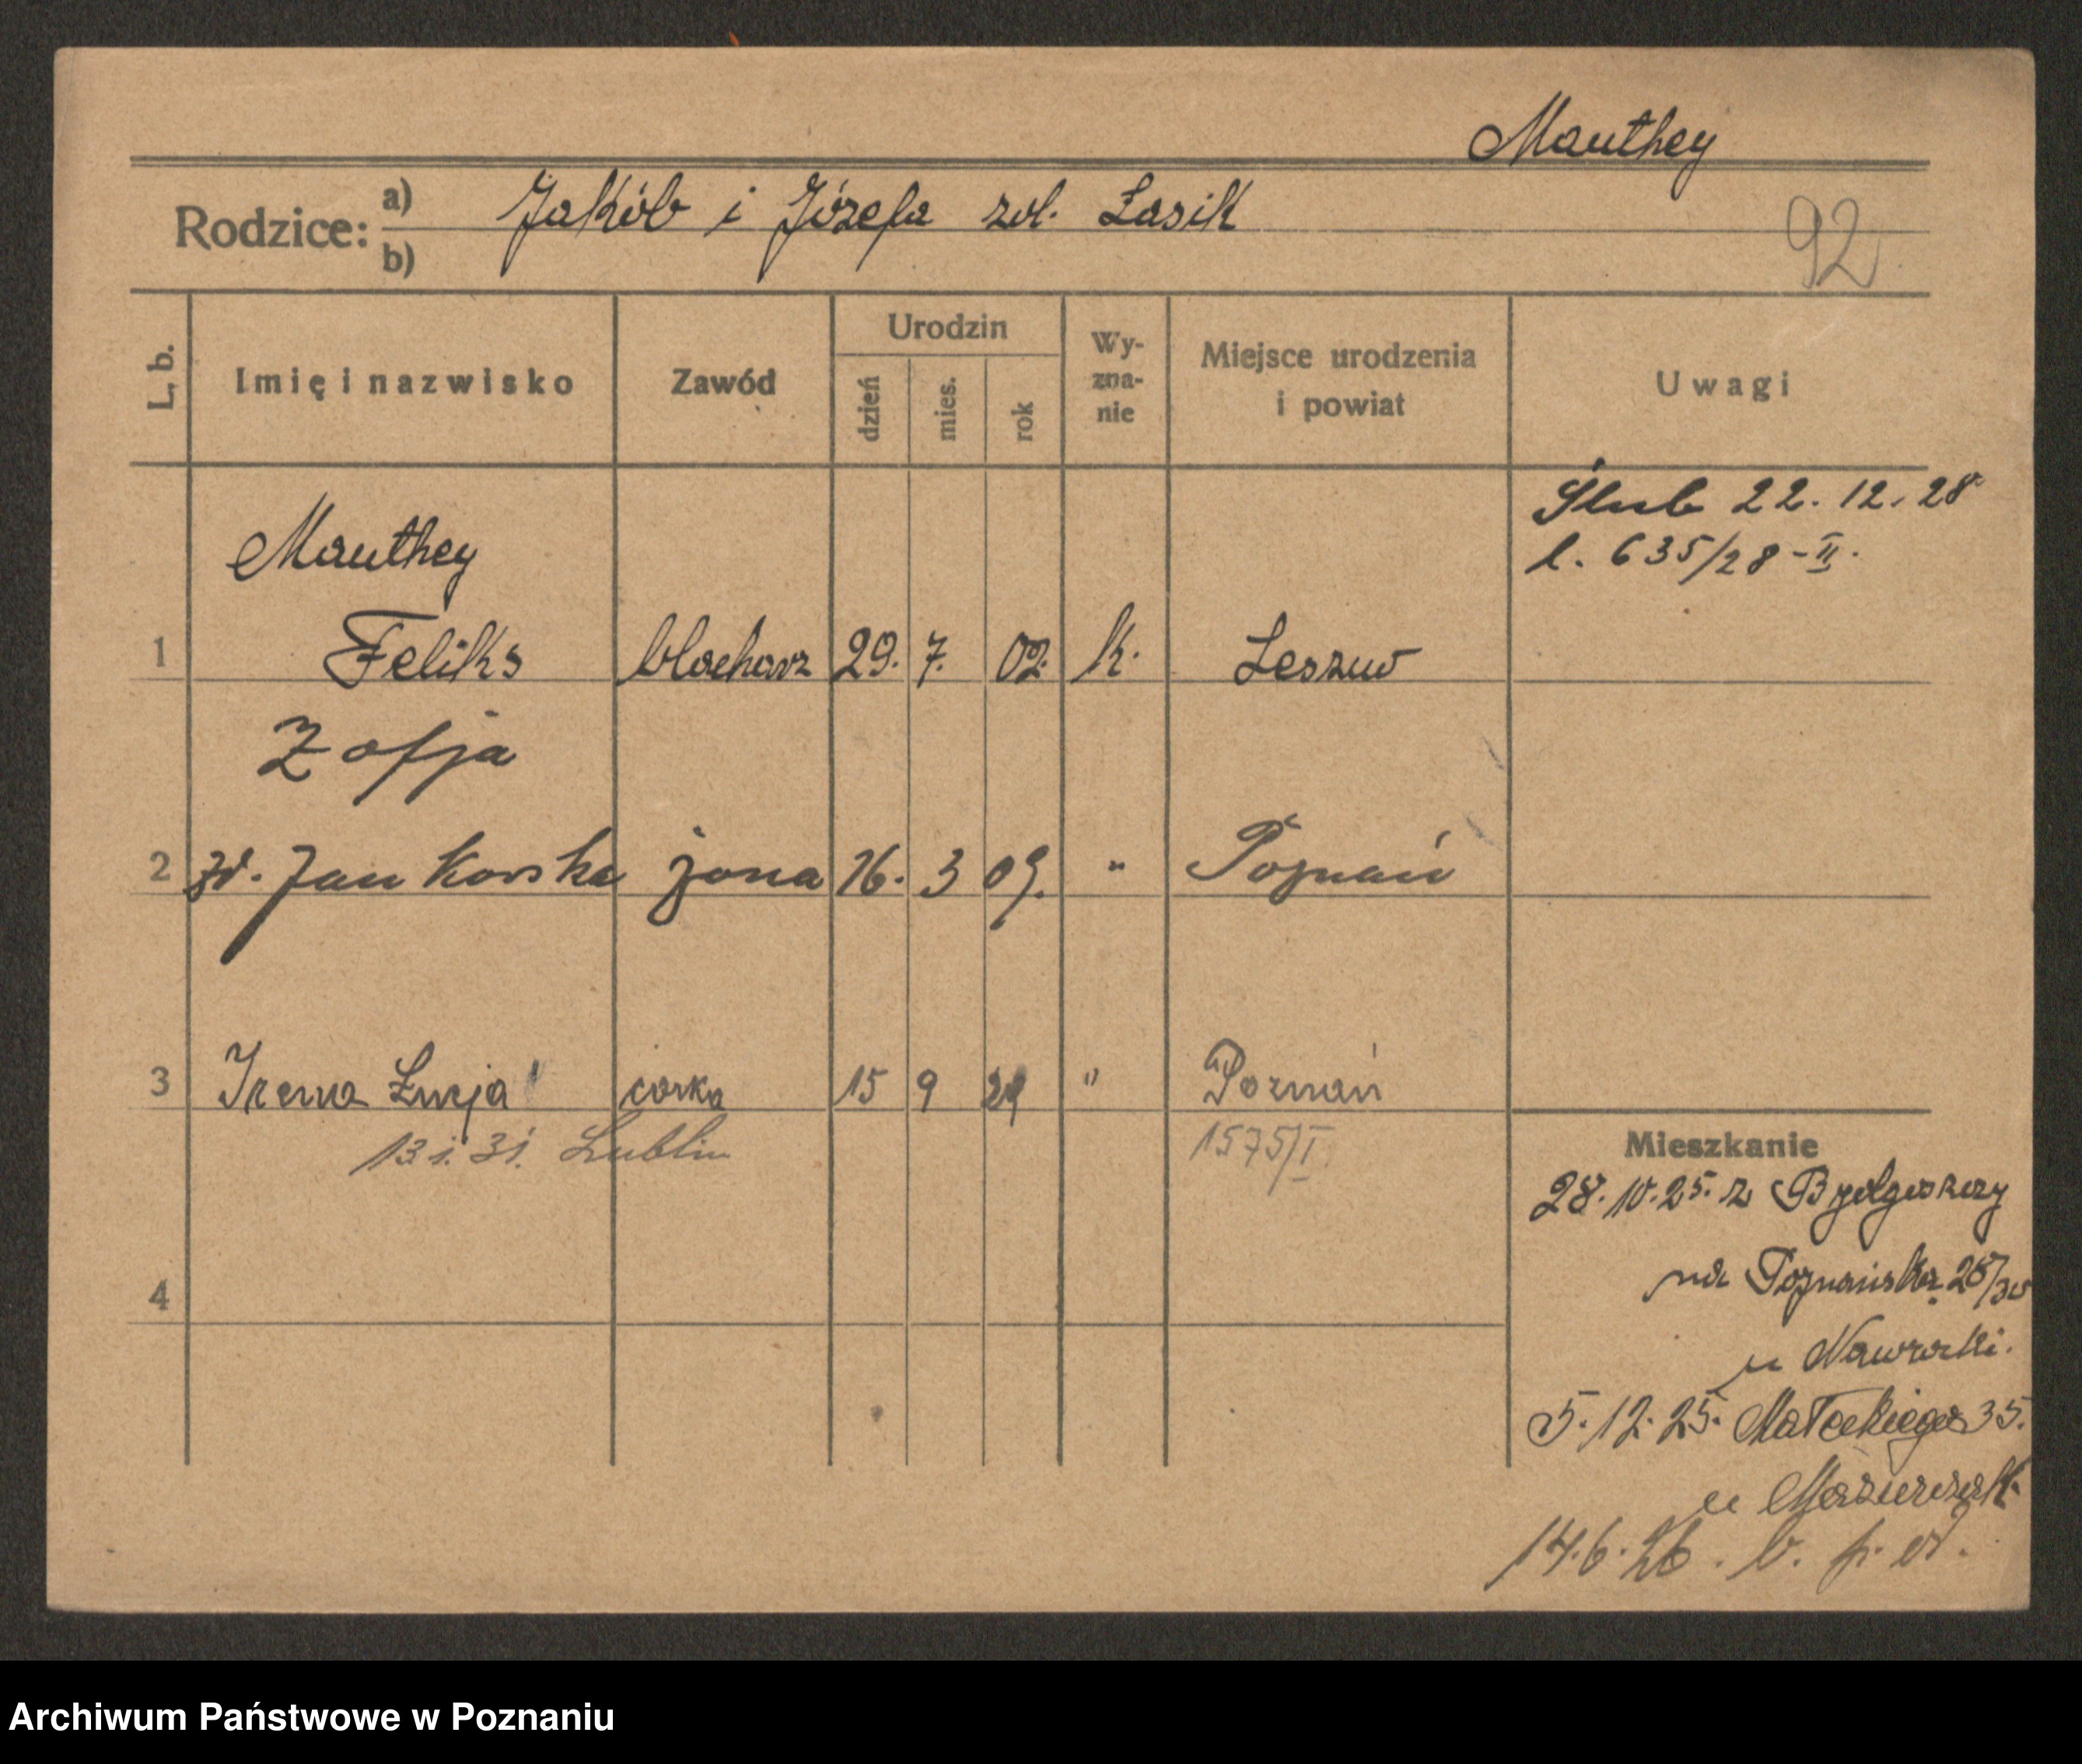 Mauthey
Rodzice: a) Jakób i Józefa zd. Lasik
b)
92
L. b.
Imię i nazwisko
Zawód
Urodzin
dzień
mies.
rok
Wy-
zna-
nie
Miejsce urodzenia
i powiat
Uwagi
Ślub 22. 12. 28
l. 635/28-II.
Mauthey
1 Feliks blacharz 29. 7. 02. k.
Zofja
2 zd. Jankowska żona 16. 3 09. " Poznań
3 Irena Łucja córka 15 9 29 " Poznań
13.1.31. Lublin 1575/I
4
Mieszkanie
28.10.25. z Bydgoszczy
na Poznańska 28/30
u Nawrocki.
5.12.25. Małeckiego 35.
u
14.6.26. b. p. od.
Archiwum Państwowe w Poznaniu